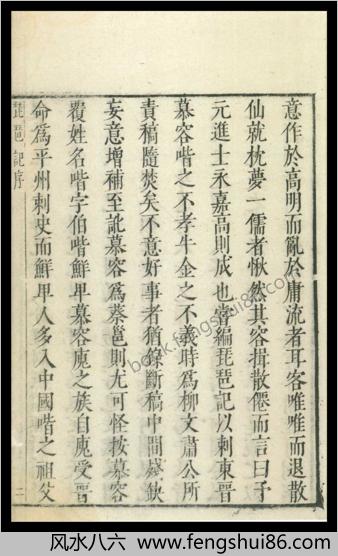 意作於高明而亂於庸流者耳客唯唯而退散
仙就枕夢一儒者愀然其容揖散僊而言曰予
元進士永嘉高則成也嘗編琵琶記以刺東晉
慕容喈之不孝牛金之不義時為柳文肅公所
責稿隨焚矣不意好事者猶錄斷稿中間殘缺
妄意增補至訛慕容為蔡邕則尤可怪按慕容
覆姓名喈字伯喈鮮卑慕容廆之族自廆受晉
命為平州刺史而鮮卑人多入中國喈之祖父
琵琶記序
二
book.fengshui86.com
风水八六 www.fengshui86.com